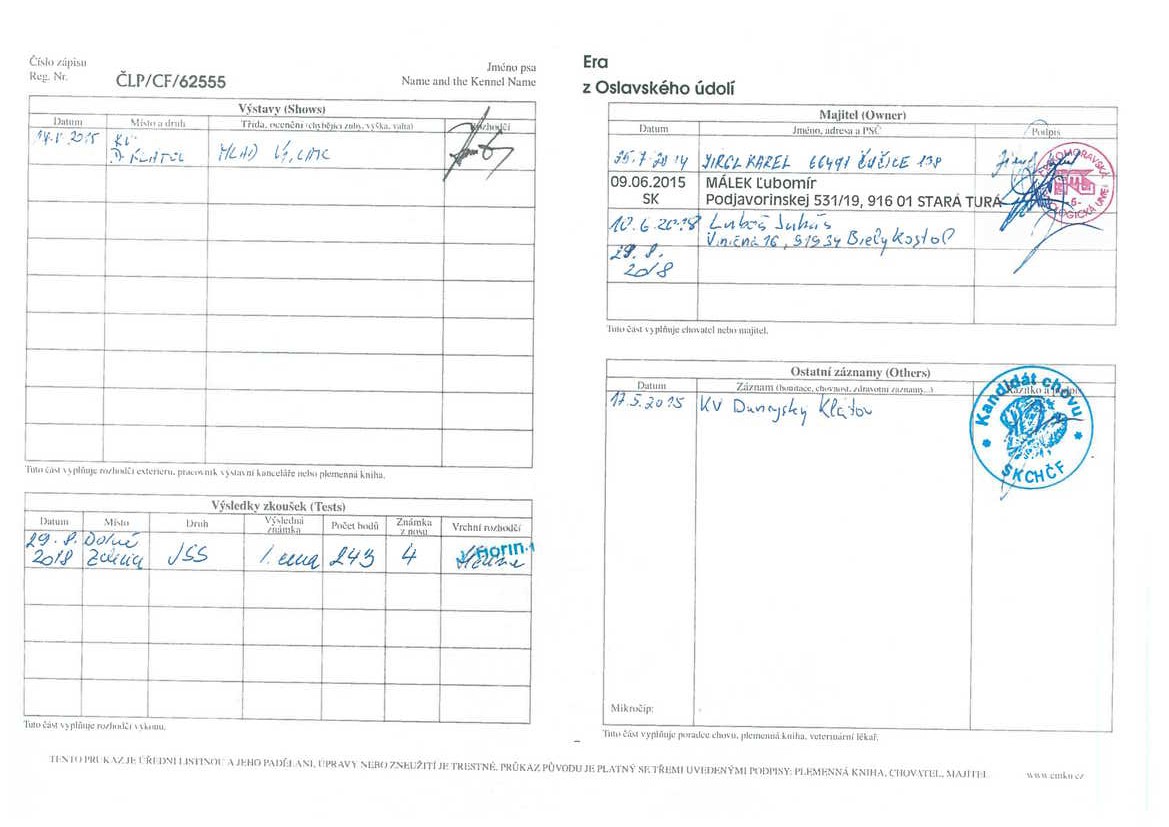 Číslo zápisu
Reg. Nr.
ČLP/CF/62555
Jméno psa
Name and the Kennel Name
Era
z Oslavského údolí
Výstavy (Shows)
Datum Místo a druh Třída, ocenění (chybějící zuby, výška, váha) Rozhodčí
KV
D. KLATOV
MLAD
Tuto část vyplňuje rozhodčí exteriéru, pracovník výstavní kanceláře nebo plemenná kniha.
Výsledky zkoušek (Tests)
Datum Místo Druh Výsledná známka Počet bodů Známka z nosu Vrchní rozhodčí
29. 8. Dolné
2018 Zelenice JSS 1. cena 243 4
Majitel (Owner)
Datum Jméno, adresa a PSČ Podpis
25.7.2014 JIRGL KAREL 66491 ČUČICE 138
09.06.2015 MÁLEK Ľubomír
SK Podjavorinskej 531/19, 916 01 STARÁ TURÁ
10.6.2018 Juhás
Viničná 16, 91934 Biely Kostol
29. 8.
2018
Tuto část vyplňuje chovatel nebo majitel.
Ostatní záznamy (Others)
Datum Záznam (bonitace, chovnost, zdravotní záznamy...) Razítko a podpis
17.5.2015 KV Dunajský Klátov
Kandidát chovu
SKCHČF
Mikročip:
Tuto část vyplňuje poradce chovu, plemenná kniha, veterinární lékař.
TENTO PRŮKAZ JE ÚŘEDNÍ LISTINOU A JEHO PADĚLÁNÍ, ÚPRAVY NEBO ZNEUŽITÍ JE TRESTNÉ. PRŮKAZ PŮVODU JE PLATNÝ SE TŘEMI UVEDENÝMI PODPISY: PLEMENNÁ KNIHA, CHOVATEL, MAJITEL
www.cmku.cz